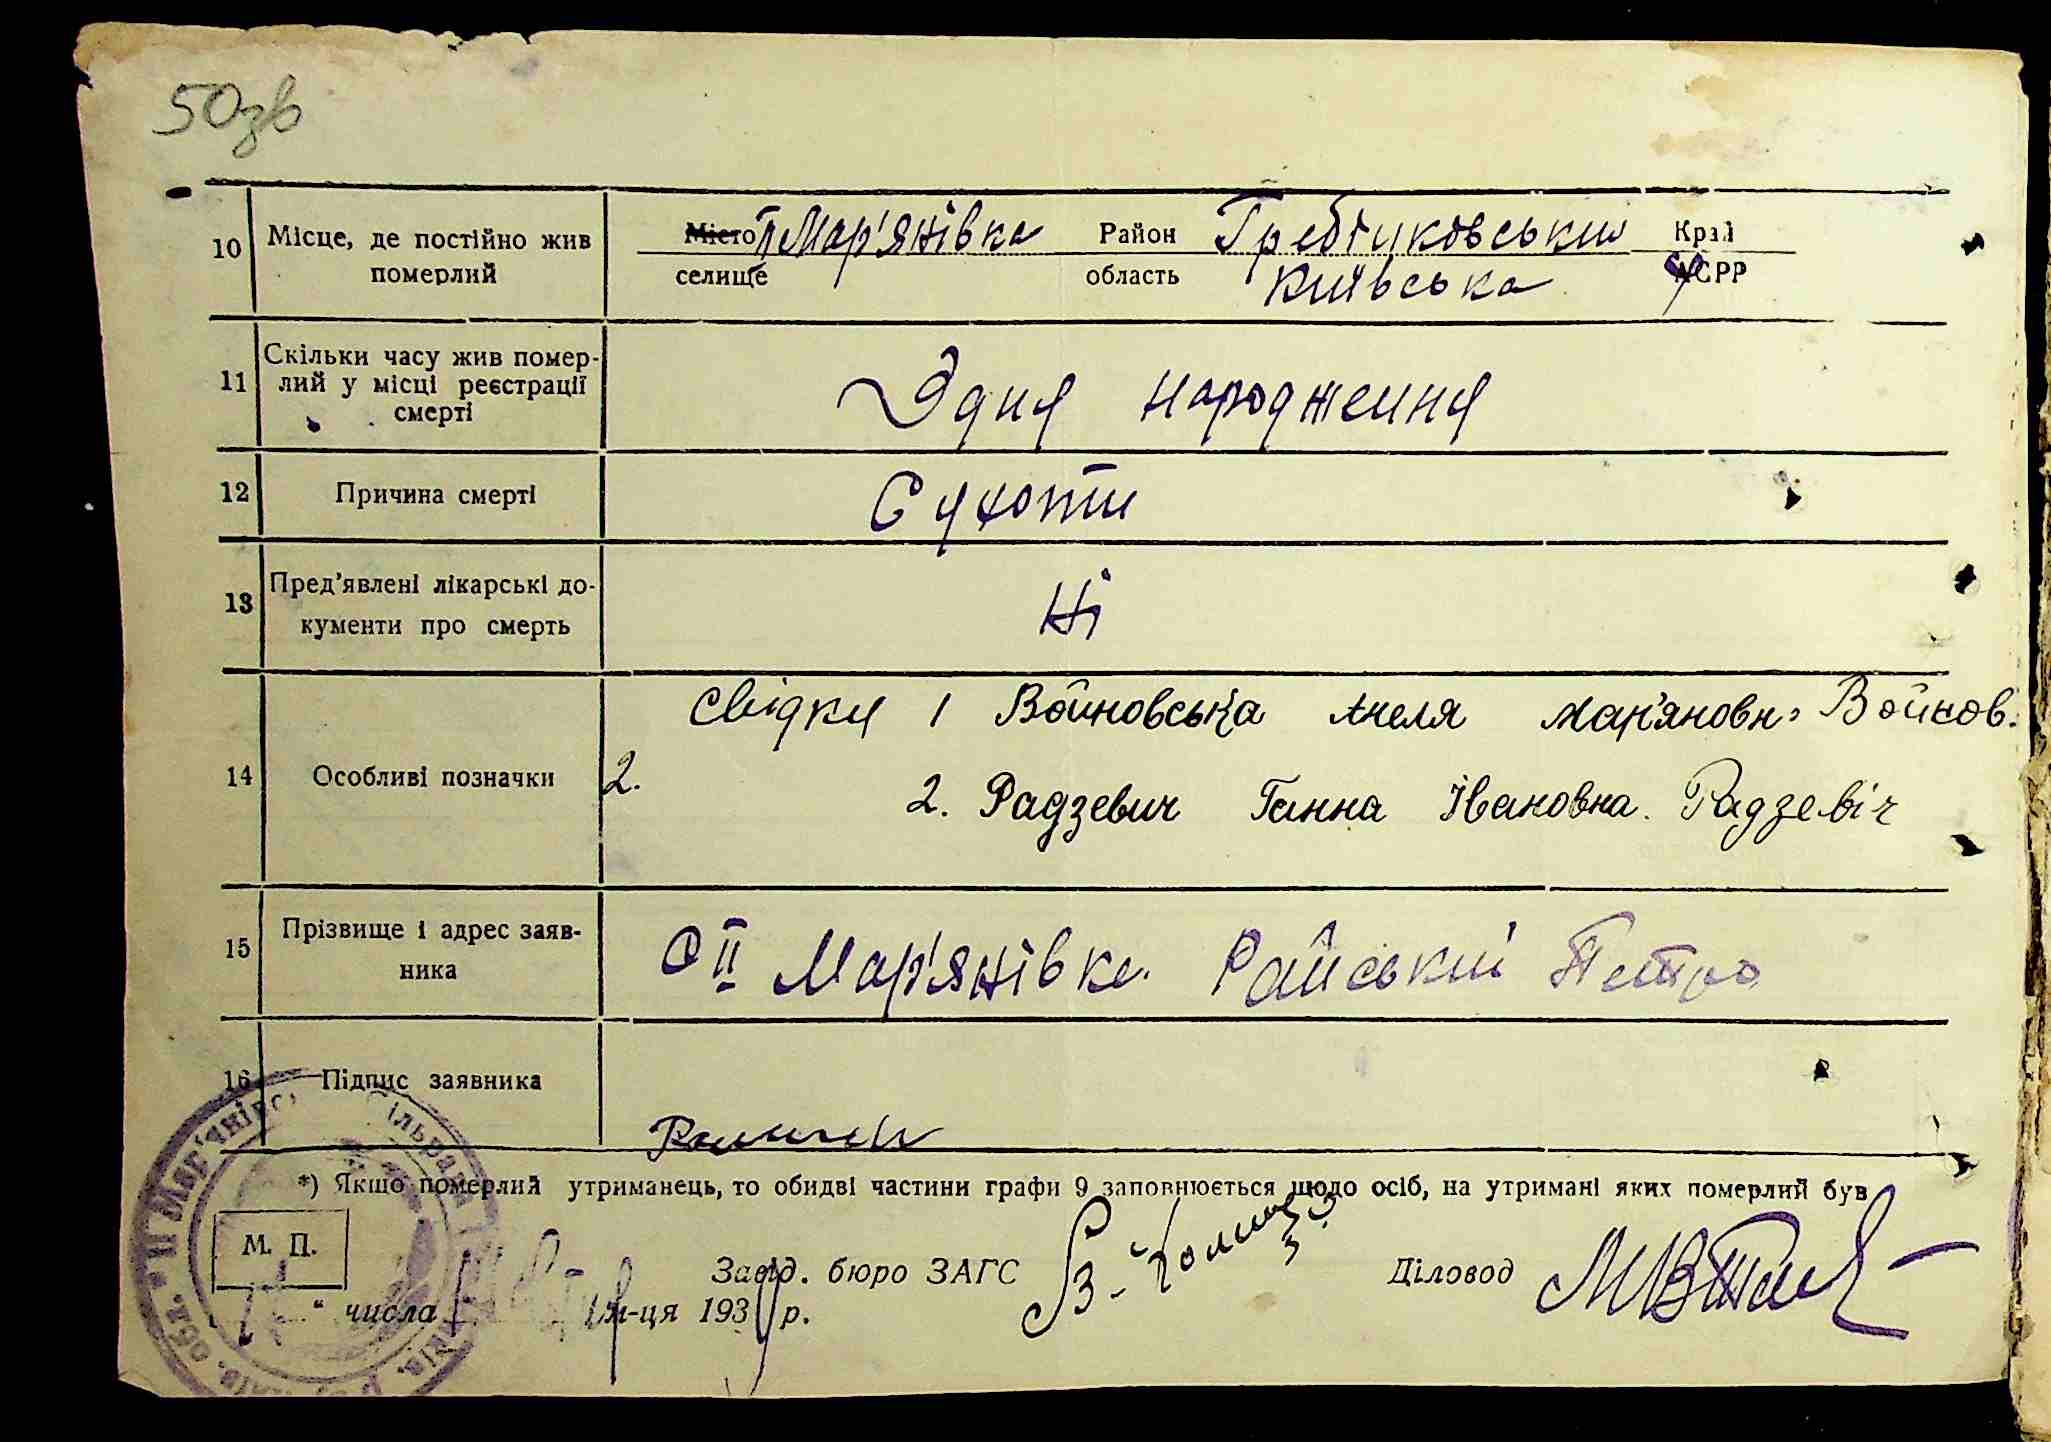 50зв
10 Місце, де постійно жив померлий
Місто ІІ Мар'янівка Район Гребінковський Край
селище область Київська УСРР
11 Скільки часу жив помер-
лий у місці реєстрації
смерті
Здня народження
12 Причина смерті Сухоти
13 Пред'явлені лікарські до-
кументи про смерть
Ні
14 Особливі позначки
Свідки 1 Войновська Анеля Мар'яновн Войнов.
2. 2. Радзевич Ганна Івановна. Радзевіч
15 Прізвище і адрес заяв-
ника
С ІІ Мар'янівка. Райський Петро
16 Підпис заявника
*) Якщо померлий утриманець, то обидві частини графи 9 заповнюється щодо осіб, на утримані яких померлий був
М. П.
Завід. бюро ЗАГС Діловод
" числа м-ця 193 р.